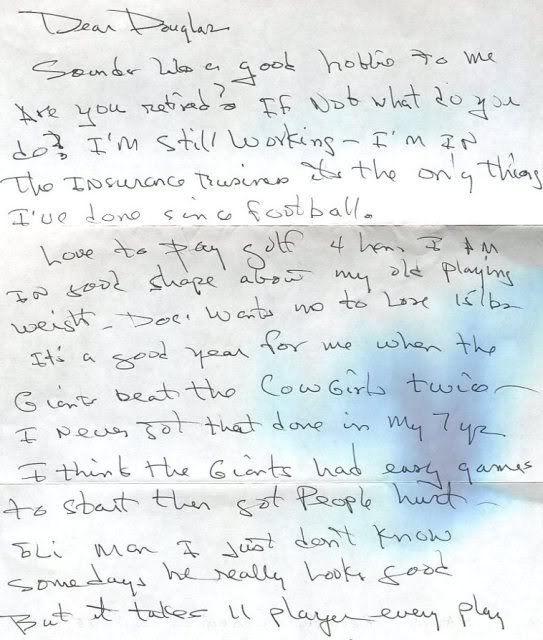 Dear Douglas
Sounds like a good hobbie to me
Are you retired? If Not what do you
do? I'm still working - I'm IN
The INSurance Business its the only thing
I've done since football.
Love to play golf 4 hcn. I AM
IN good shape about my old playing
weight - Doc. wants me to Lose 15 lbs
It's a good year for me when the
Giants beat the CowGirls twice -
I Never got that done in my 7 yr
I think the Giants had easy games
to start then got People hurt -
Eli man I just don't know
somedays he really looks good
But it takes 11 player every play